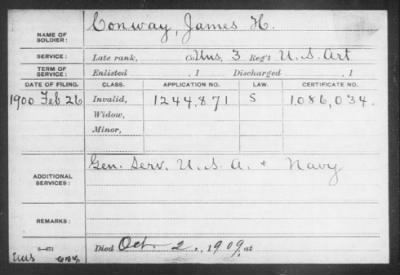 NAME OF SOLDIER: Conway, James H.
SERVICE: Late rank, Co. Uns, 3 Reg't U.S. Art
TERM OF SERVICE: Enlisted , 1 Discharged , 1
DATE OF FILING. CLASS. APPLICATION NO. LAW. CERTIFICATE NO.
1900 Feb 26 Invalid, 1244,871 S 1,086,034.
Widow,
Minor,
ADDITIONAL SERVICES: Gen. Serv. U.S.A. & Navy
REMARKS:
3-671 Died Oct. 2, 1909, at